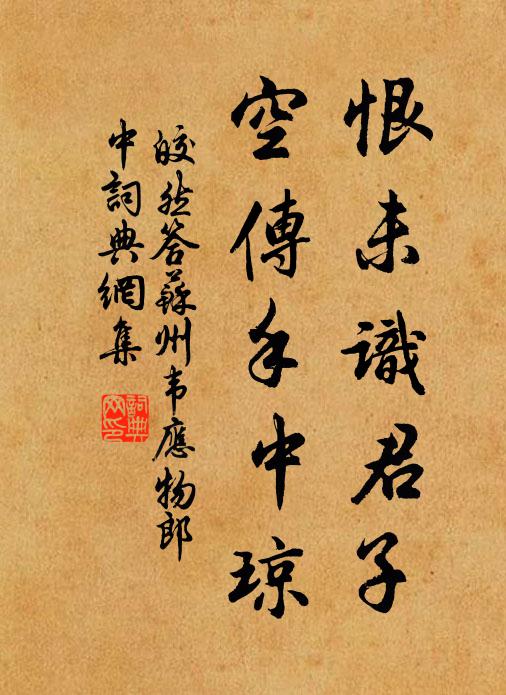 恨未識君子
空傳手中琼
皎然答蘇州韦應物郎
中詞典網集
詞典
网印